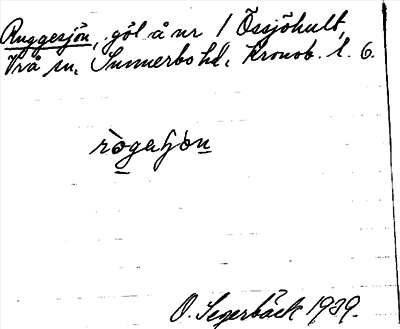 Ruggesjön, göl å nr 1 Össjöhult,
Vrå sn, Sunnerbo hd, Kronob. l. 6.
O. Segerbäck 1939.